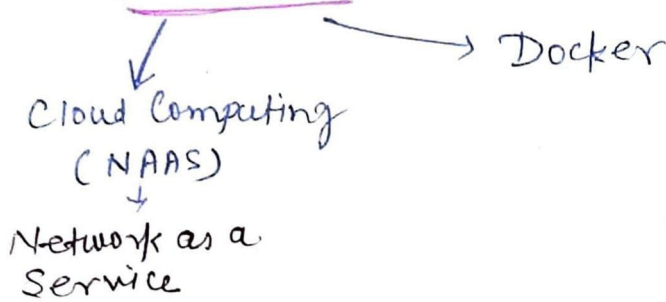 Docker
Cloud Computing
(NAAS)
Network as a
Service